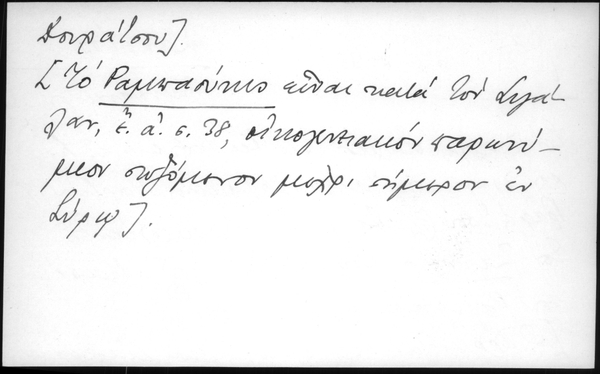 Δουράτσου].
[Τό Ραμπαούνης εἶναι κατά τόν Σιγά-
λαν, ἔ. ἀ. σ. 38, οἰκογενειακόν παρωνύ-
μιον σωζόμενον μέχρι σήμερον ἐν
Σύρῳ].